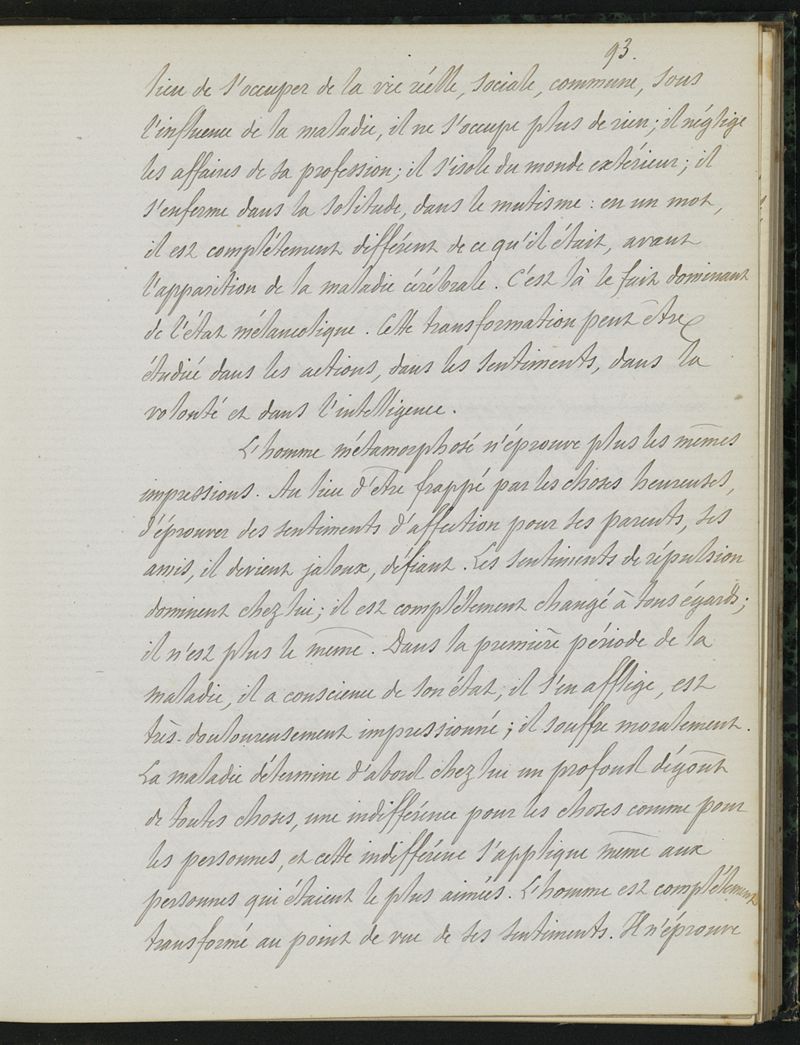 93.
lieu de s'occuper de la vie réelle, sociale, commune, sous
l'influence de la maladie, il ne s'occupe plus de rien; il néglige
les affaires de sa profession; il s'isole du monde extérieur; il
s'enferme dans la solitude, dans le mutisme: en un mot,
il est complétement différent de ce qu'il était, avant
l'apparition de la maladie cérébrale. C'est là le fait dominant
de l'état mélancolique. Cette transformation peut être
étudiée dans les actions, dans les sentiments, dans la
volonté et dans l'intelligence.
L'homme métamorphosé n'éprouve plus les mêmes
impressions. Au lieu d'être frappé par les choses heureuses,
d'éprouver des sentiments d'affection pour ses parents, ses
amis, il devient jaloux, défiant. Les sentiments de répulsion
dominent chez lui; il est complétement changé à tous égards;
il n'est plus le même. Dans la première période de la
maladie, il a conscience de son état, il s'en afflige, est
très-douloureusement impressionné; il souffre moralement.
La maladie détermine d'abord chez lui un profond dégoût
de toutes choses, une indifférence pour les choses comme pour
les personnes, et cette indifférence s'applique même aux
personnes qui étaient le plus aimées. L'homme est complétement
transformé au point de vue de ses sentiments. Il n'éprouve